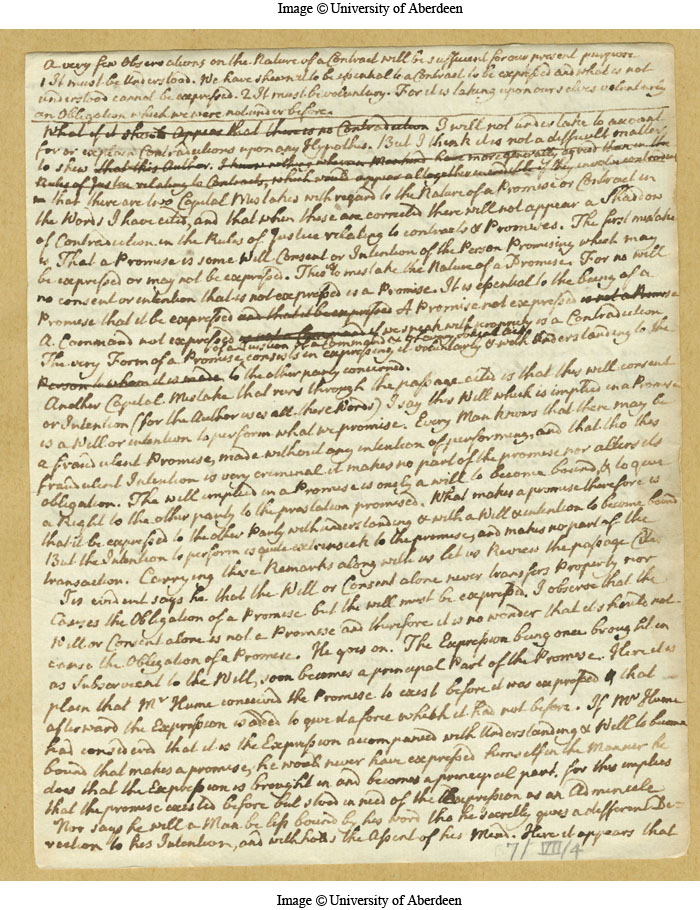 Image © University of Aberdeen
A very few Observations on the Nature of a Contract will be sufficient for our present purpose
1 It must be Understood. We have shewn it to be essential to a Contract to be expressed and what is not
understood cannot be expressed. 2 It must be voluntary. For it is taking upon ourselves voluntarly
an Obligation which we were not under before.
What if it should appear that there is no Contradiction I will not undertake to account
for or explain Contradictions upon any Hypothis. But I think it is not a difficult matter
to shew that this Author. I know nothing wherein Mankind have more generally agreed than in the
Rules of Justice relating to Contracts, which would appear altogether incredible if they involve
that there are two Capital Mistakes with regard to the Nature of a Promise or Contract in
the Words I have cited, and that when these are corrected there will not appear a Shaddow
of Contradiction in the Rules of Justice relating to contracts & Promises. The first mistake
is That a Promise is some Will Consent or Intention of the Person Promising which may
be expressed or may not be expressed. This is to mistake the Nature of a Promise. For no will
no consent or intention that is not expressed is a Promise. It is essential to the being of a
Promise that it be expressed and that it be expressed A Promise not expressed is not a Promise
A Command not expressed is not a Command if we speak with propriety is a Contradiction
of a Question of a Command & of
The very Form of a Promise consists in expressing it voluntarly & with Understanding to the
Person to whom it is made to the other party concerned.
Another Capital Mistake that runs through the passage cited is that this will consent
or Intention (for the Author uses all these Words) I say this Will which is implied in a Promise
is a Will or intention to perform what we promise. Every Man knows that there may be
a fraudulent Promise, made without any intention of performing, and that tho this
fraudulent Intention is very criminal it makes no part of the promise nor alters its
obligation. The will implied in a Promise is onely a will to become bound, & to give
a Right to the other party to the prestation promised. What makes a promise therefore is
that it be expressed to the other Party with understanding & with a Will & intention to become bound
But the Intention to perform is quite extrinsick to the promise, and makes no part of the
transaction. Carrying these Remarks along with us let us Review the passage cited
Tis evident says he that the Will or Consent alone never transfers Property nor
causes the Obligation of a Promise but the will must be expressed. I observe that the
Will or Consent alone is not a Promise and therefore it is no wonder that it should not
cause the Obligation of a Promise. He goes on. The Expression being once brought in
as Subservient to the Will, soon becomes a principal Part of the Promise. Here it is
plain that Mr Hume conceived the Promise to exist before it was expressed & that
afterward the Expression is added to give it a force which it had not before. If Mr Hume
had considered that it is the Expression accompanied with Understanding & Will to become
bound that makes a promise, he would never have expressed himself in the Manner he
does that the Expression is brought in and becomes a principal part, for this implies
that the promise existed before but stood in need of the Expression as an Adminicle
Nor says he will a Man be less bound by his word tho he secretly gives a different Di-
rection to his Intention, and with holds the Assent of his Mind. Here it appears that
7/VII/4
Image © University of Aberdeen